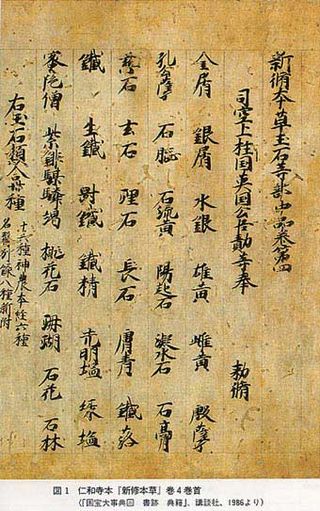 新脩本草玉石等部中品卷第四
司空上柱国英国公臣勣等奉　勑脩
金屑　銀屑　水銀　雄黄　雌黄　殷孽
孔公孽　石脳　石流黄　陽起石　凝水石　石膏
慈石　玄石　理石　長石　膚青　鐵落
鐵　生鐵　鐵　鐵精　光明塩　緑塩
密陀僧　紫鉚騏驎竭　桃花石　珊瑚　石花　石
右玉石類種
十六種神農本経六種
名醫別録八種新附
図1　仁和寺本『新修本草』巻4巻首
（『国宝大事典　書跡　典籍』、講談社、1986より）